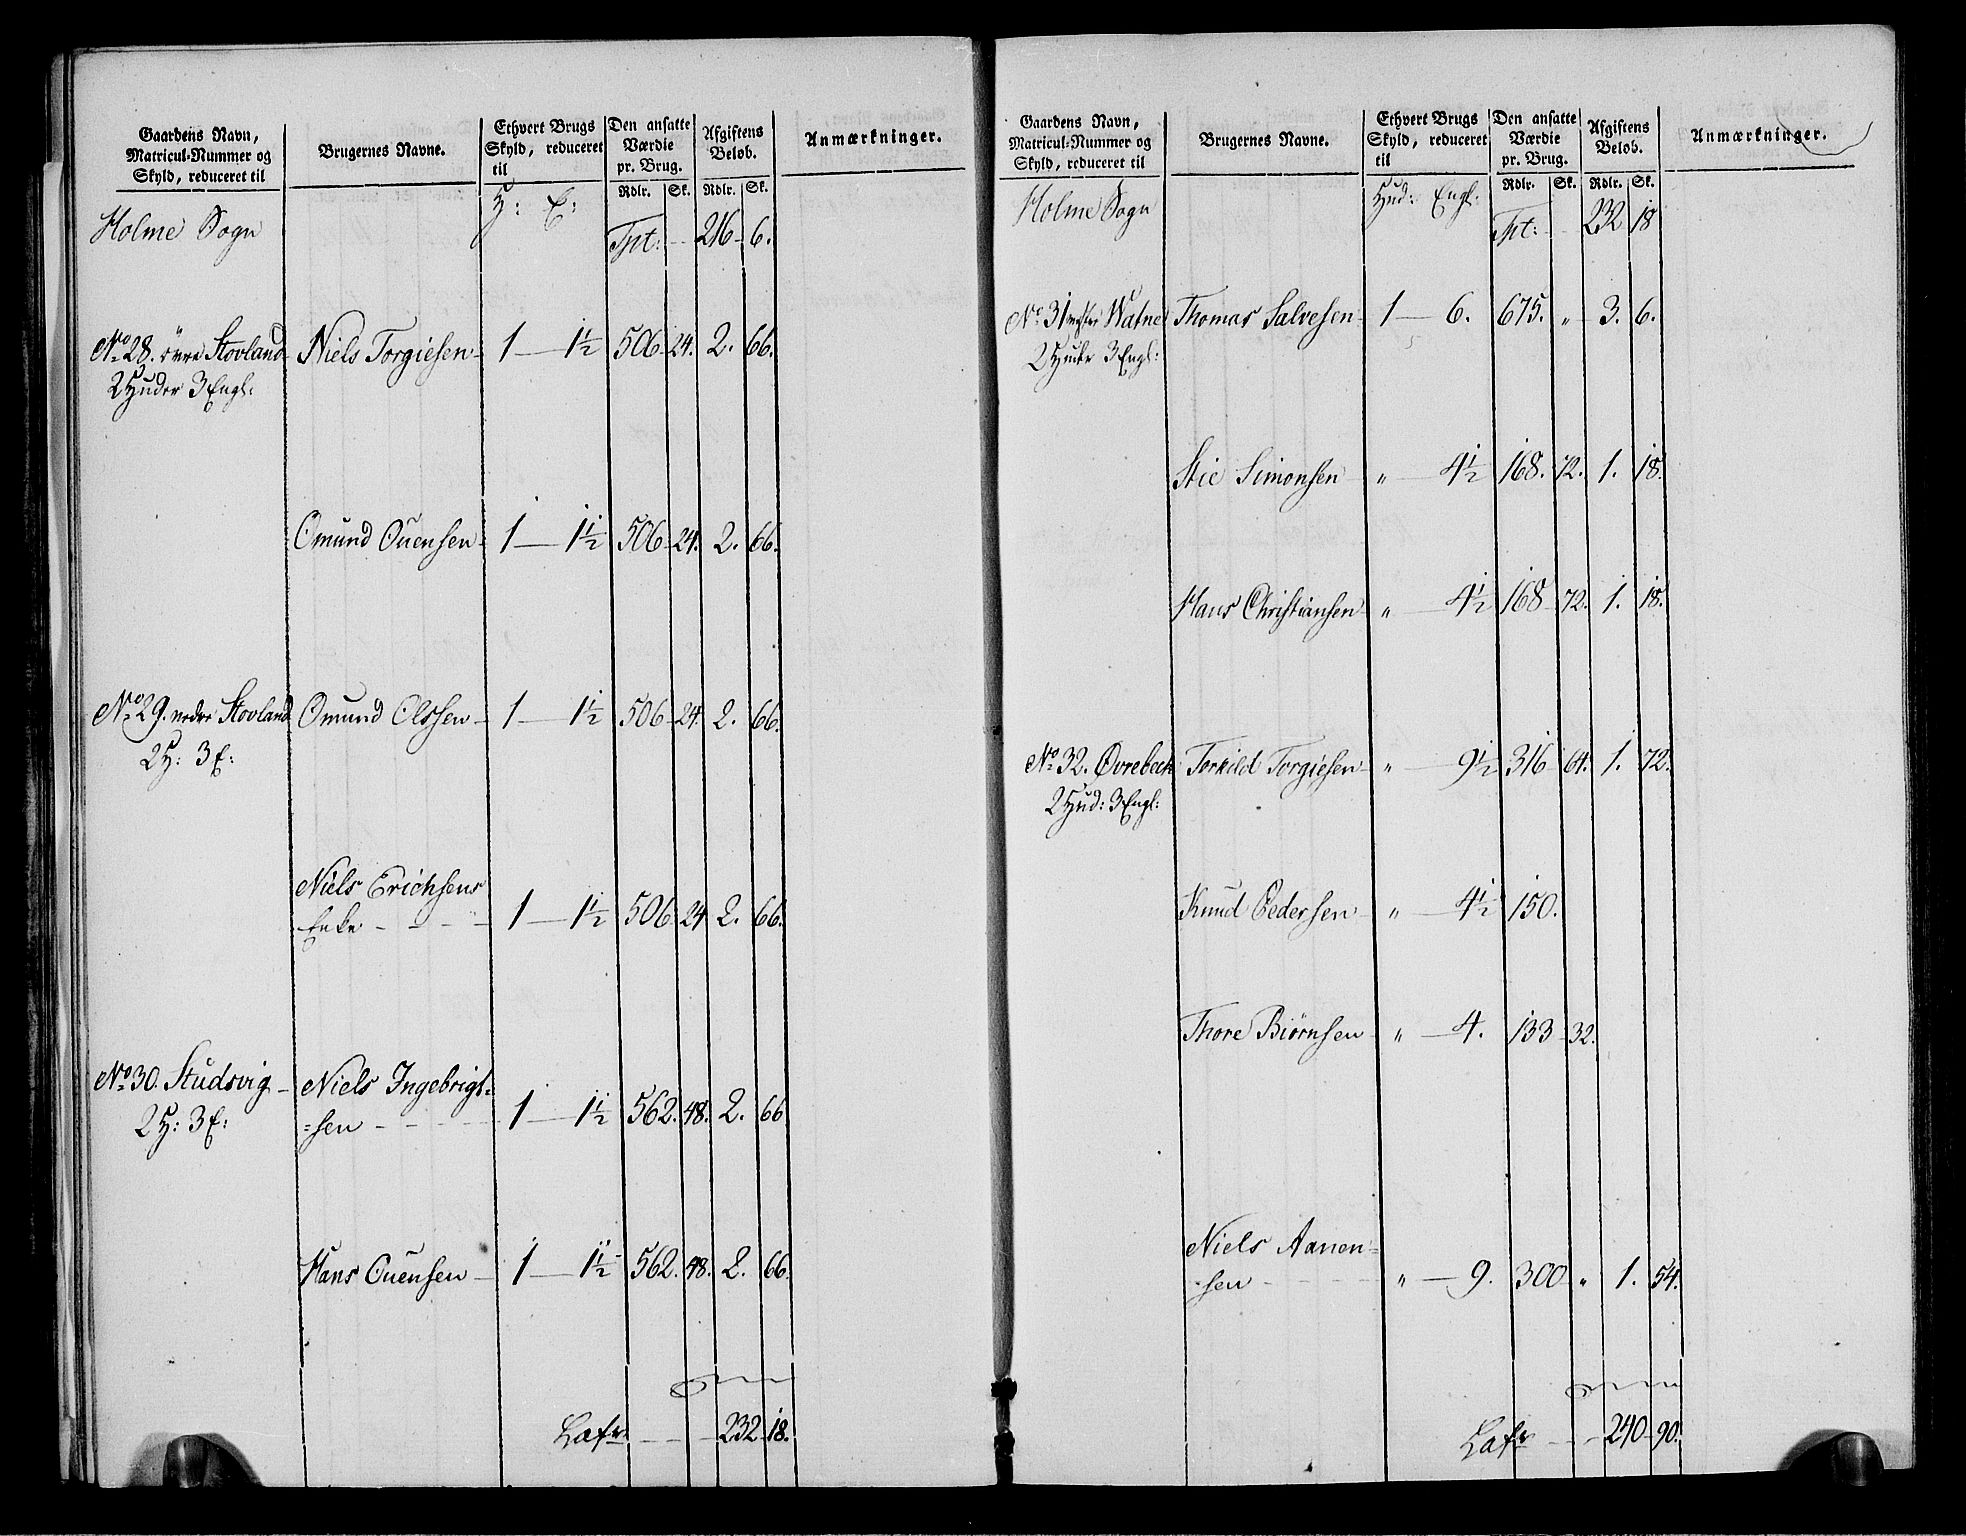 Gaardens Navn, Matricul-Nummer og Skyld, reduceret til | Brugernes Navne. | Ethvert Brugs Skyld, reduceret til | Den ansatte Værdie pr. Brug. | Afgiftens Beløb. | Anmærkninger.
Rdlr. Sk. Rdlr. Sk.
Holme Sogn H: E: Tpt: 216 6.
No 28. övre Stovland Niels Torgiesen 1 — 1½ 506 24. 2. 66.
2 Huder 3 Engl:
Omund Ouensen 1 — 1½ 506 24. 2. 66.
No 29. nedre Stovland Omund Olssen 1 — 1½ 506 24. 2. 66.
2 H: 3 E:
Niels Erichsens
Enke 1 — 1½ 506 24 2. 66.
No 30. Studsvig Niels Ingebrigt=
2 H: 3 E: =sen 1 — 1½ 562. 48. 2. 66
Hans Ouensen 1 — 1½ 562. 48. 2. 66.
Lafr 232 18.
Gaardens Navn, Matricul-Nummer og Skyld, reduceret til | Brugernes Navne. | Ethvert Brugs Skyld, reduceret til | Den ansatte Værdie pr. Brug. | Afgiftens Beløb. | Anmærkninger.
Rdlr. Sk. Rdlr. Sk.
Holme Sogn Hud: Engl: Tpt: 232 18
No 31 Watne Thomas Salvesen 1 — 6. 675. " 3. 6.
2 Huder 3 Engl:
Stie Simonsen " — 4½ 168. 72. 1. 18.
Hans Christiansen " — 4½ 168 72. 1. 18.
No 32. Øvrebeck Torkild Torgiesen " — 9½ 316 64. 1. 72.
2 Hud: 3 Engl:
Knud Pedersen " — 4½ 150.
Thore Biørnsen " — 4. 133 32.
Niels Aanen=
=sen " — 9. 300 " 1. 54.
Lafr 240 90.